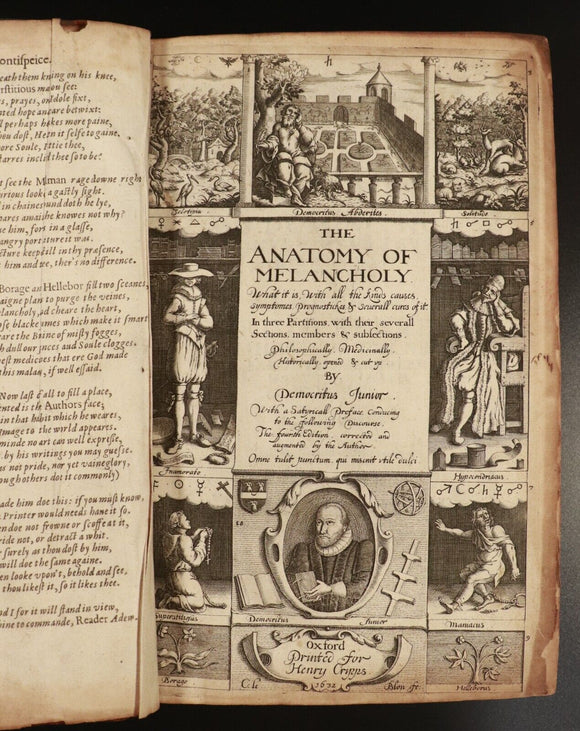 ontispeice.
eath them kning on his knee,
rstitious man see:
s, prayes, on
ted hope
l perhaps
thou dost, He in it selfe to gaine.
ore Soule,
tarres
t see the rage downe right
urtous look a gastly sight.
in chaines
ound doth he lye,
oares amai he knowes not why?
e him, for
in a glasse,
angry portraiture it was.
cture keepe still in thy presence,
him and
ue, ther's no difference.
Borage
Hellebor fill two sceanes,
aigne plan
to purge the veines,
lancholy,
cheare the heart,
ose blacke
fumes which make it smart
eare the
of misty fogges,
and Soule clogges.
ere God made
this malady, if well essaid.
Now last
all to fill a place,
ented is the Authors face;
in that habit which he weares,
Image to the world appeares.
minde no art can well expresse,
by his writings you may guesse.
as not pride, nor yet vaineglory,
ough others doe it commonly)
ade him doe this: if you must know,
Printer would needs have it so.
en doe not frowne or scoffe at it,
ride not, or detract a whit.
r surely as thou dost by him,
will doe the same againe.
en looke upon't, behold and see,
thou likest it, so it likes thee.
nd I for it will stand in view,
ine to commande, Reader Adew.
Democritus Abderites.
Solitudo.
THE
ANATOMY OF
MELANCHOLY
What it is, With all the kinds causes,
symptomes, prognostickes & severall cures of it.
In three Partitions, with their severall
Sections, members & subsections.
Philosophically, Medicinally,
Historically, opened & cut up.
By
Democritus Junior.
With a Satyricall Preface, Conducing
to the following Discourse.
The fourth Edition, corrected and
augmented by the Author.
Omne tulit punctum, qui miscuit utile dulci.
Inamorato
Hypocondriacus
Superstitiosus
Democritus Junior
Maniacus
Oxford
Printed for
Henry Cripps
1632
Borago
C. le Blon fe.
Helleborus